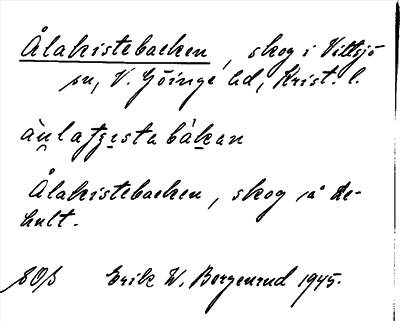 Ålakistebacken, skog i Vittsjö
sn, V. Göinge hd, Krist. l.
Ålakistebacken, skog på De-
hult.
SOS Erik W. Bergenrud 1945.